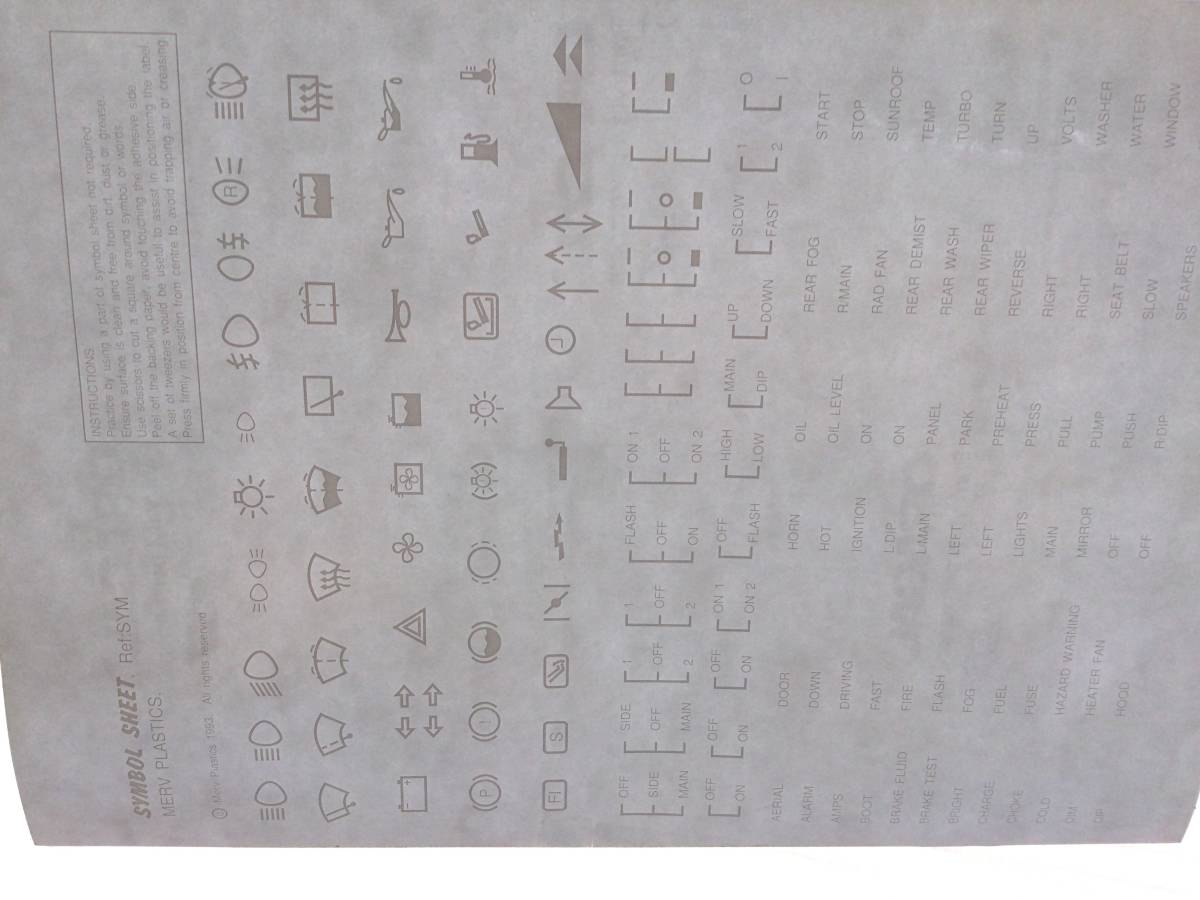 SYMBOL SHEET. Ref:SYM
MERV PLASTICS.
© Merv Plastics 1993. All rights reserved
INSTRUCTIONS
Practice by using a part of symbol sheet not required.
Ensure surface is clean and free from dirt, dust or grease.
Use scissors to cut a square around symbol or words.
Peel off the backing paper, avoid touching the adhesive side.
A set of tweezers would be useful to assist in positioning the label.
Press firmly in position from centre to avoid trapping air or creasing.
R
P ! !
FI S
OFF SIDE 1 1 FLASH ON 1
SIDE OFF OFF OFF OFF OFF
MAIN MAIN 2 2 ON ON 2
OFF OFF OFF ON 1 OFF HIGH MAIN UP SLOW 1 O
ON ON ON ON 2 FLASH LOW DIP DOWN FAST 2 I
AERIAL
ALARM
AMPS
BOOT
BRAKE FLUID
BRAKE TEST
BRIGHT
CHARGE
CHOKE
COLD
DIM
DIP
DOOR
DOWN
DRIVING
FAST
FIRE
FLASH
FOG
FUEL
FUSE
HAZARD WARNING
HEATER FAN
HOOD
HORN
HOT
IGNITION
L.DIP
L.MAIN
LEFT
LEFT
LIGHTS
MAIN
MIRROR
OFF
OFF
OIL
OIL LEVEL
ON
ON
PANEL
PARK
PREHEAT
PRESS
PULL
PUMP
PUSH
R.DIP
REAR FOG
R.MAIN
RAD FAN
REAR DEMIST
REAR WASH
REAR WIPER
REVERSE
RIGHT
RIGHT
SEAT BELT
SLOW
SPEAKERS
START
STOP
SUNROOF
TEMP
TURBO
TURN
UP
VOLTS
WASHER
WATER
WINDOW